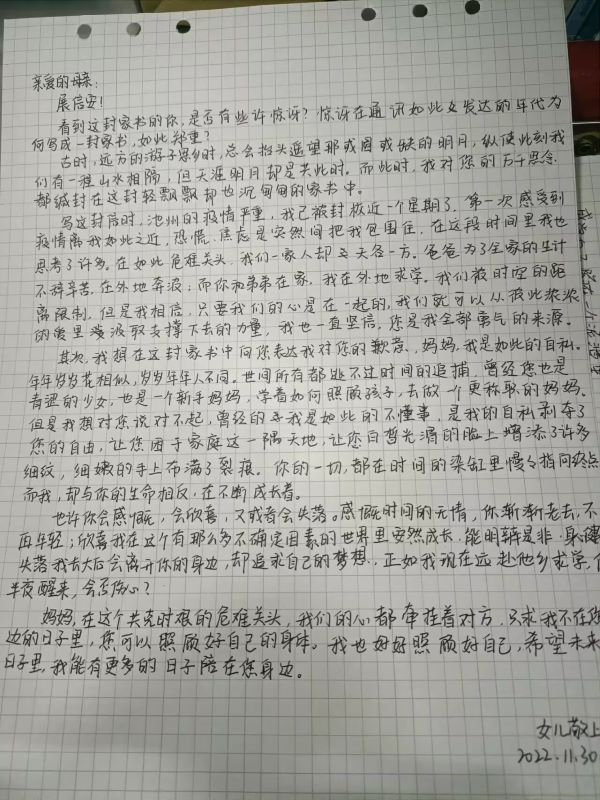 亲爱的母亲：
展信安！
看到这封家书的你，是否有些许惊讶？惊讶在通讯如此发达的年代为
何写成一封家书，如此郑重？
古时，远方的游子思乡时，总会抬头遥望那或圆或缺的明月，纵使此刻我
们有一程山水相隔，但天涯明月却是共此时。而此时，我对您的万千思念
都缄封在这封轻飘飘却也沉甸甸的家书中。
写这封信时，池州的疫情严重，我已被封校近一个星期了，第一次感受到
疫情离我如此之近，恐慌、焦虑是突然间把我包围住，在这段时间里我也
思考了许多。在如此危难关头，我们一家人却天各一方。爸爸为了全家的生计
不辞辛苦，在外地奔波；而你和弟弟在家，我在外地求学。我们被时空的距
离限制，但是我相信，只要我们的心是在一起的，我们就可以从彼此浓浓
的爱里汲取支撑下去的力量，我也一直坚信，您是我全部勇气的来源。
其次，我想在这封家书中向您表达我对您的歉意，妈妈，我是如此的自私。
年年岁岁花相似，岁岁年年人不同。世间所有都逃不过时间的追捕，曾经您也是
青涩的少女，也是一个新手妈妈，学着如何照顾孩子，去做一个更称职的妈妈。
但是我想对您说对不起，曾经的我是如此的不懂事，是我的自私剥夺了
您的自由，让您困于家庭这一隅天地，让您白皙光滑的脸上增添了许多
细纹，细嫩的手上布满了裂痕。你的一切，都在时间的染缸里慢慢指向终点
而我，却与你的生命相反，在不断成长着。
也许你会感慨，会欣喜，又或者会失落。感慨时间的无情，你渐渐老去，不
再年轻；欣喜我在这个有那么多不确定因素的世界里安然成长，能明辨是非，身
失落我长大后会离开你的身边，却追求自己的梦想，正如我现在远赴他乡求学，
半夜醒来，会否伤心？
妈妈，在这个共克时艰的危难关头，我们的心都牵挂着对方，只求我不在您
边的日子里，您可以照顾好自己的身体。我也好好照顾好自己，希望未来
日子里，我能有更多的日子陪在您身边。
女儿敬上
2022.11.30